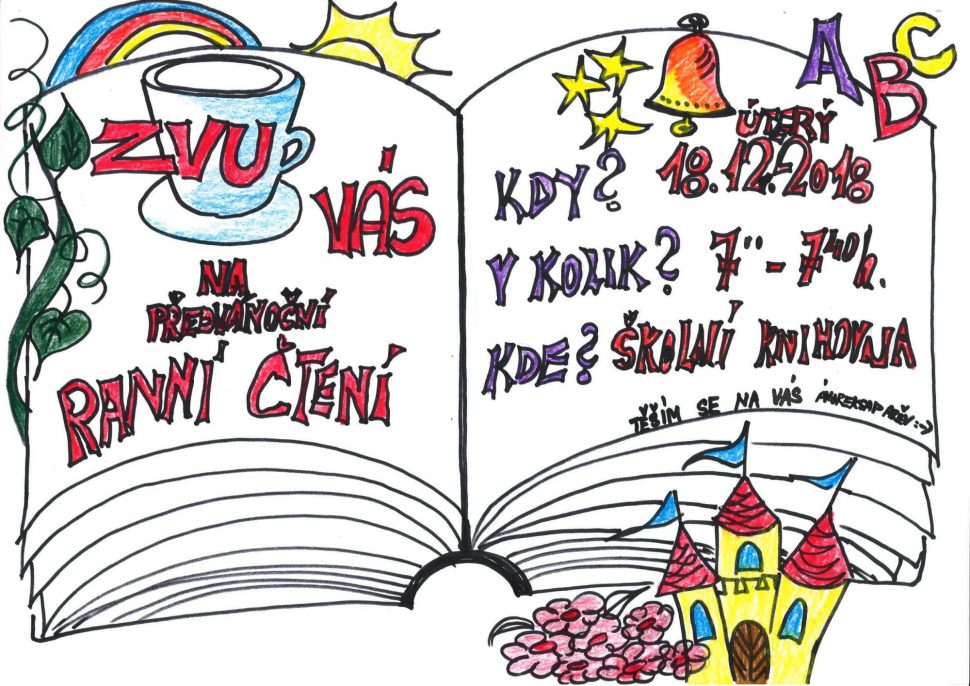 ZVU
VÁS
NA
PŘEDVÁNOČNÍ
RANNÍ ČTENÍ
A B C
ÚTERÝ
KDY? 18.12.2018
V KOLIK? 7 - 7⁴⁰h.
KDE? ŠKOLNÍ KNIHOVNA
TĚŠÍM SE NA VÁS